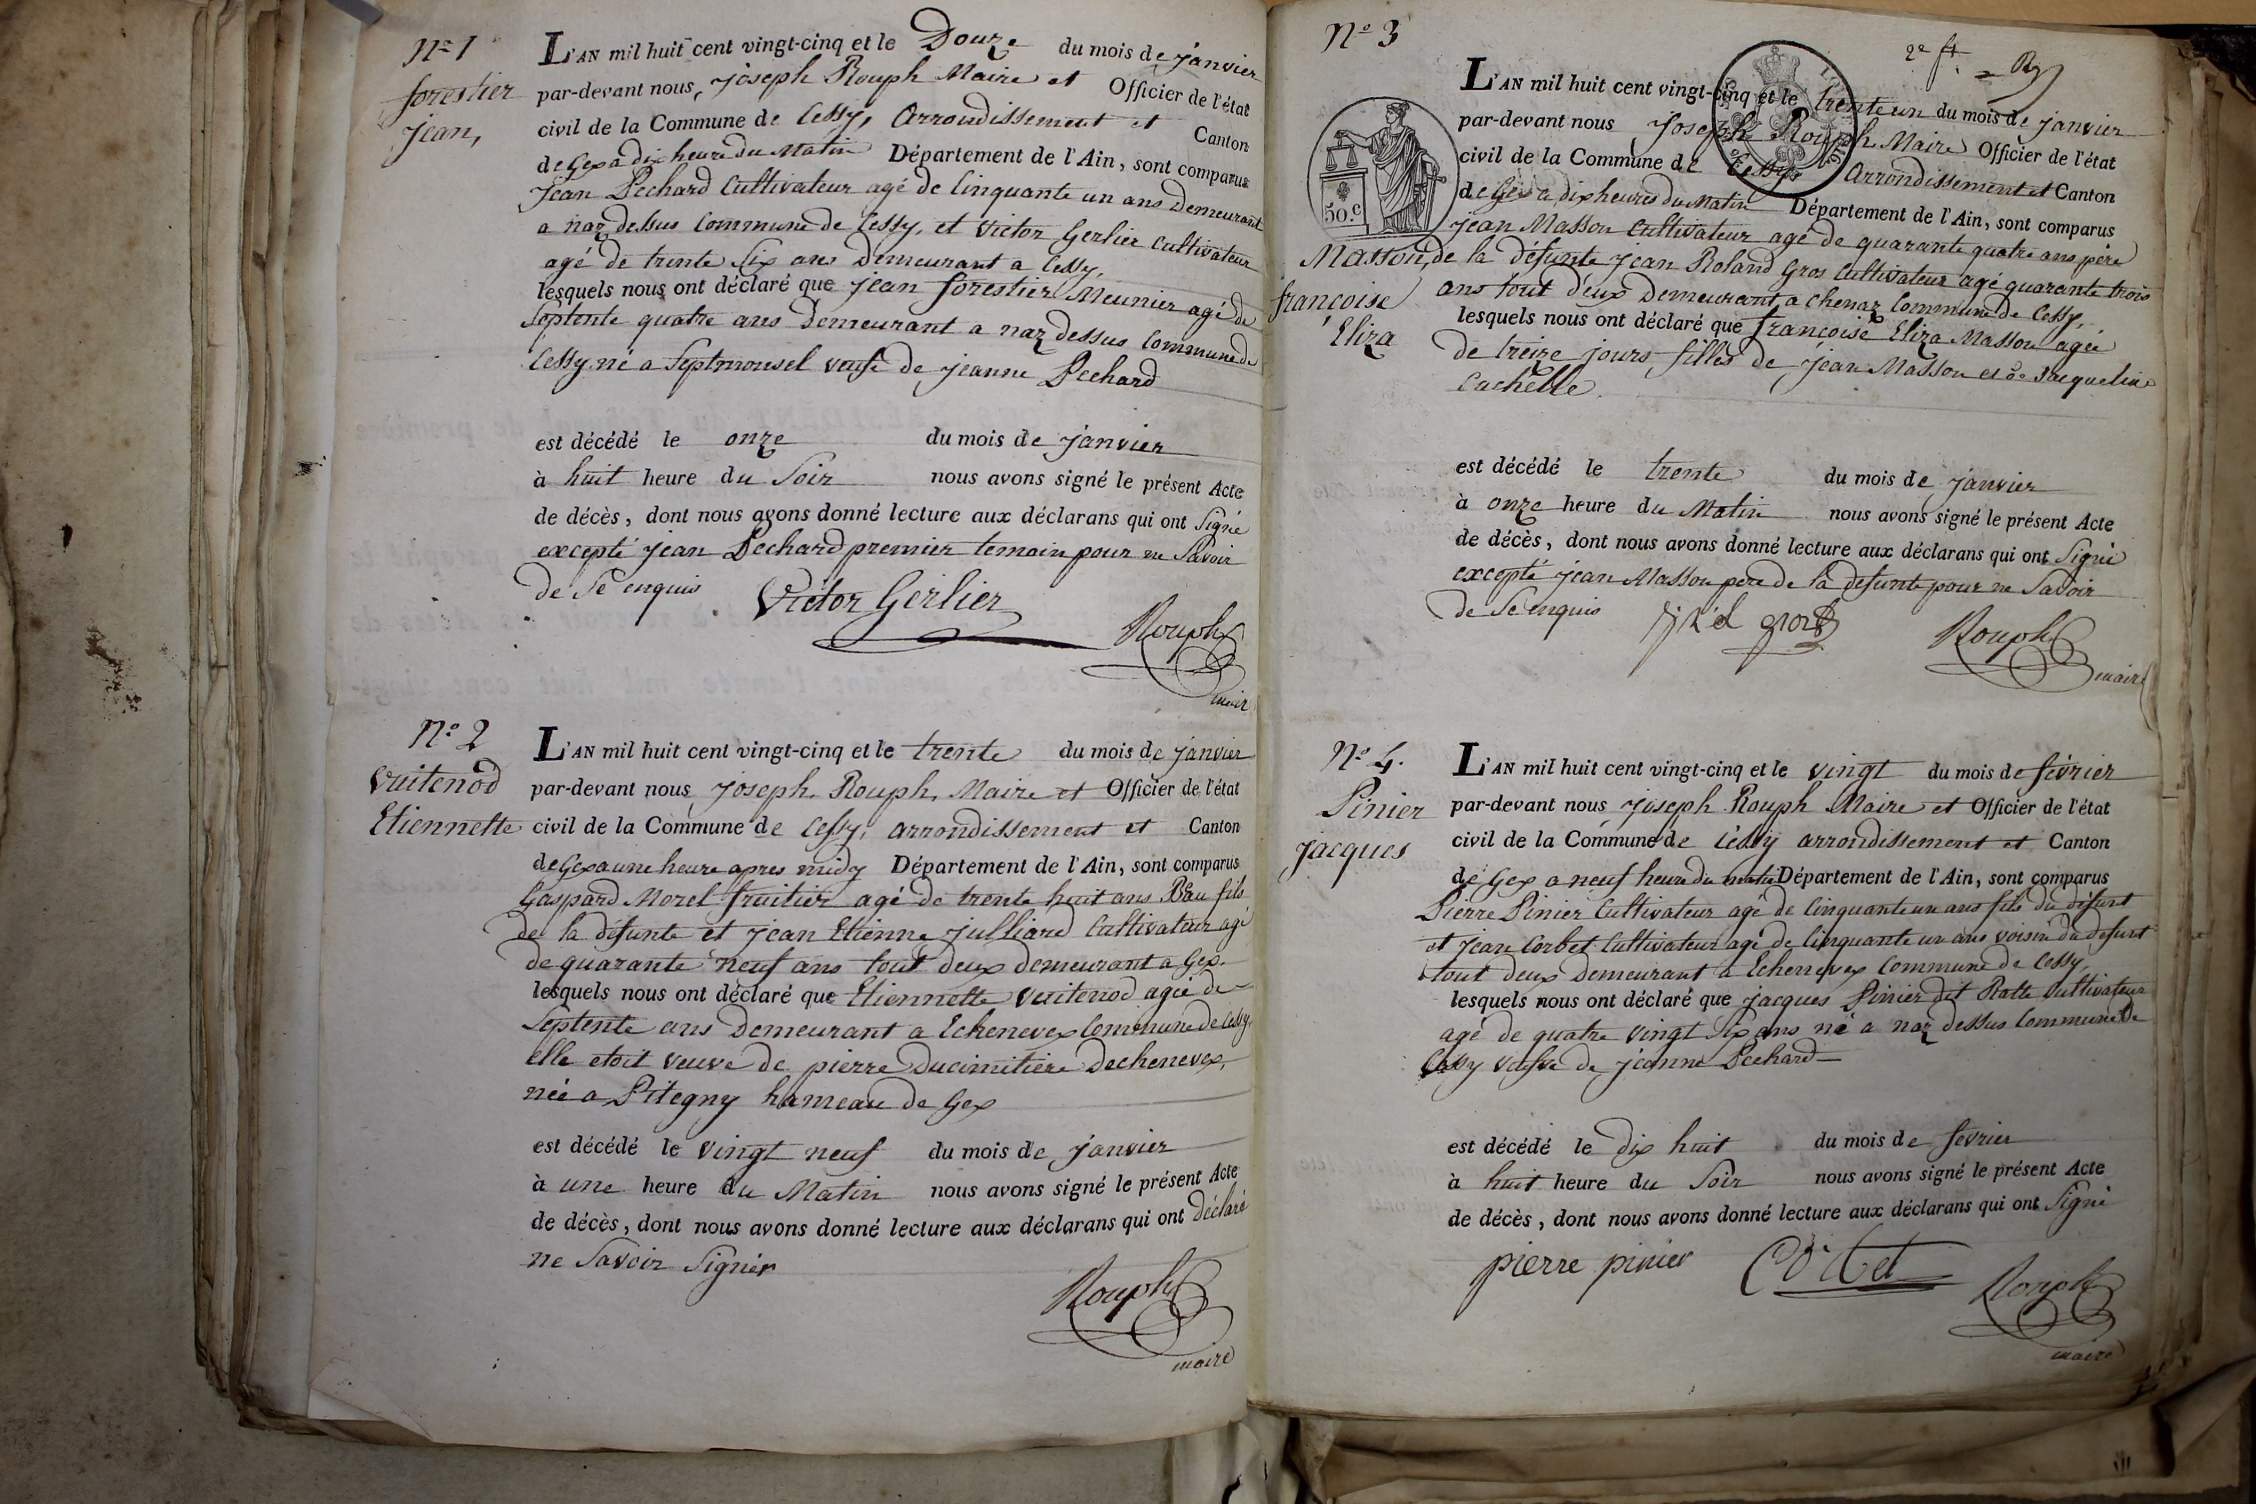 N° 1
forestier
jean,
L'AN mil huit cent vingt-cinq et le Douze du mois de janvier
par-devant nous, joseph Rouph Maire et Officier de l'état
civil de la Commune de Cessy, Arrondissement et Canton
de Gex a dix heure du Matin Département de l'Ain, sont comparus
Jean Pechard Cultivateur agé de Cinquante un ans Demeurant
a naz dessus Commune de Cessy, et Victor Gerlier Cultivateur
agé de trente Six ans Demeurant a Cessy,
lesquels nous ont déclaré que jean forestier Meunier agé de
Septente quatre ans Demeurant a naz dessus Commune de
Cessy né a Septmousel veufe de jeanne Pechard
est décédé le onze du mois de janvier
à huit heure du Soir nous avons signé le présent Acte
de décès, dont nous avons donné lecture aux déclarans qui ont Signé
excepté jean Pechard premier temoin pour ne Savoir
de Se enquis Victor Gerlier
Rouph
maire
N° 2
Vuitenod
Etiennette
L'AN mil huit cent vingt-cinq et le trente du mois de janvier
par-devant nous joseph Rouph, Maire et Officier de l'état
civil de la Commune de Cessy, arrondissement et Canton
de Gex a une heure apres midy Département de l'Ain, sont comparus
Gaspard Morel fruitier agé de trente huit ans Beau fils
de la défunte et jean Etienne julliard Cultivateur agé
de quarante neuf ans tout deux demeurant a Gex.
lesquels nous ont déclaré que Etiennette Vuitenod agée de
Septente ans Demeurant a Echenevex Commune de Cessy,
elle etoit veuve de pierre Ducimitiere Dechenevex,
née a Pitegny hameau de Gex
est décédé le vingt neuf du mois de janvier
à une heure du Matin nous avons signé le présent Acte
de décès, dont nous avons donné lecture aux déclarans qui ont déclaré
ne Savoir Signer
Rouph
maire
N° 3
2e ft.
50.c
Masson,
françoise
Eliza
L'AN mil huit cent vingt-cinq et le trente un du mois de janvier
par-devant nous Joseph Rouph Maire Officier de l'état
civil de la Commune de Cessy Arrondissement et Canton
de Gex a dix heures du Matin Département de l'Ain, sont comparus
jean Masson Cultivateur agé de quarante quatre ans père
de la défunte jean Roland Gros Cultivateur agé quarante trois
ans tout deux Demeurant a chenaz Commune de Cessy,
lesquels nous ont déclaré que françoise Eliza Masson agée
de treize jours, filles de jean Masson et de Jacqueline
Cachelle.
est décédé le trente du mois de janvier
à onze heure du Matin nous avons signé le présent Acte
de décès, dont nous avons donné lecture aux déclarans qui ont Signé
excepté jean Masson pere de la defunte pour ne Savoir
de Se enquis
Rouph
maire
N° 4.
Pinier
jacques
L'AN mil huit cent vingt-cinq et le vingt du mois de février
par-devant nous joseph Rouph Maire et Officier de l'état
civil de la Commune de Cessy arrondissement et Canton
de Gex a neuf heure du matin Département de l'Ain, sont comparus
Pierre Pinier Cultivateur agé de Cinquante un ans fils du défunt
et jean Corbet Cultivateur agé de Cinquante un ans voisin du defunt
tout deux Demeurant a Echenevex Commune de Cessy,
lesquels nous ont déclaré que jacques Pinier dit Ratte Cultivateur
agé de quatre vingt Six ans né a naz dessus Commune de
Cessy veufve de jeanne Pechard
est décédé le dix huit du mois de fevrier
à huit heure du Soir nous avons signé le présent Acte
de décès, dont nous avons donné lecture aux déclarans qui ont Signé
pierre pinier Corbet
Rouph
maire